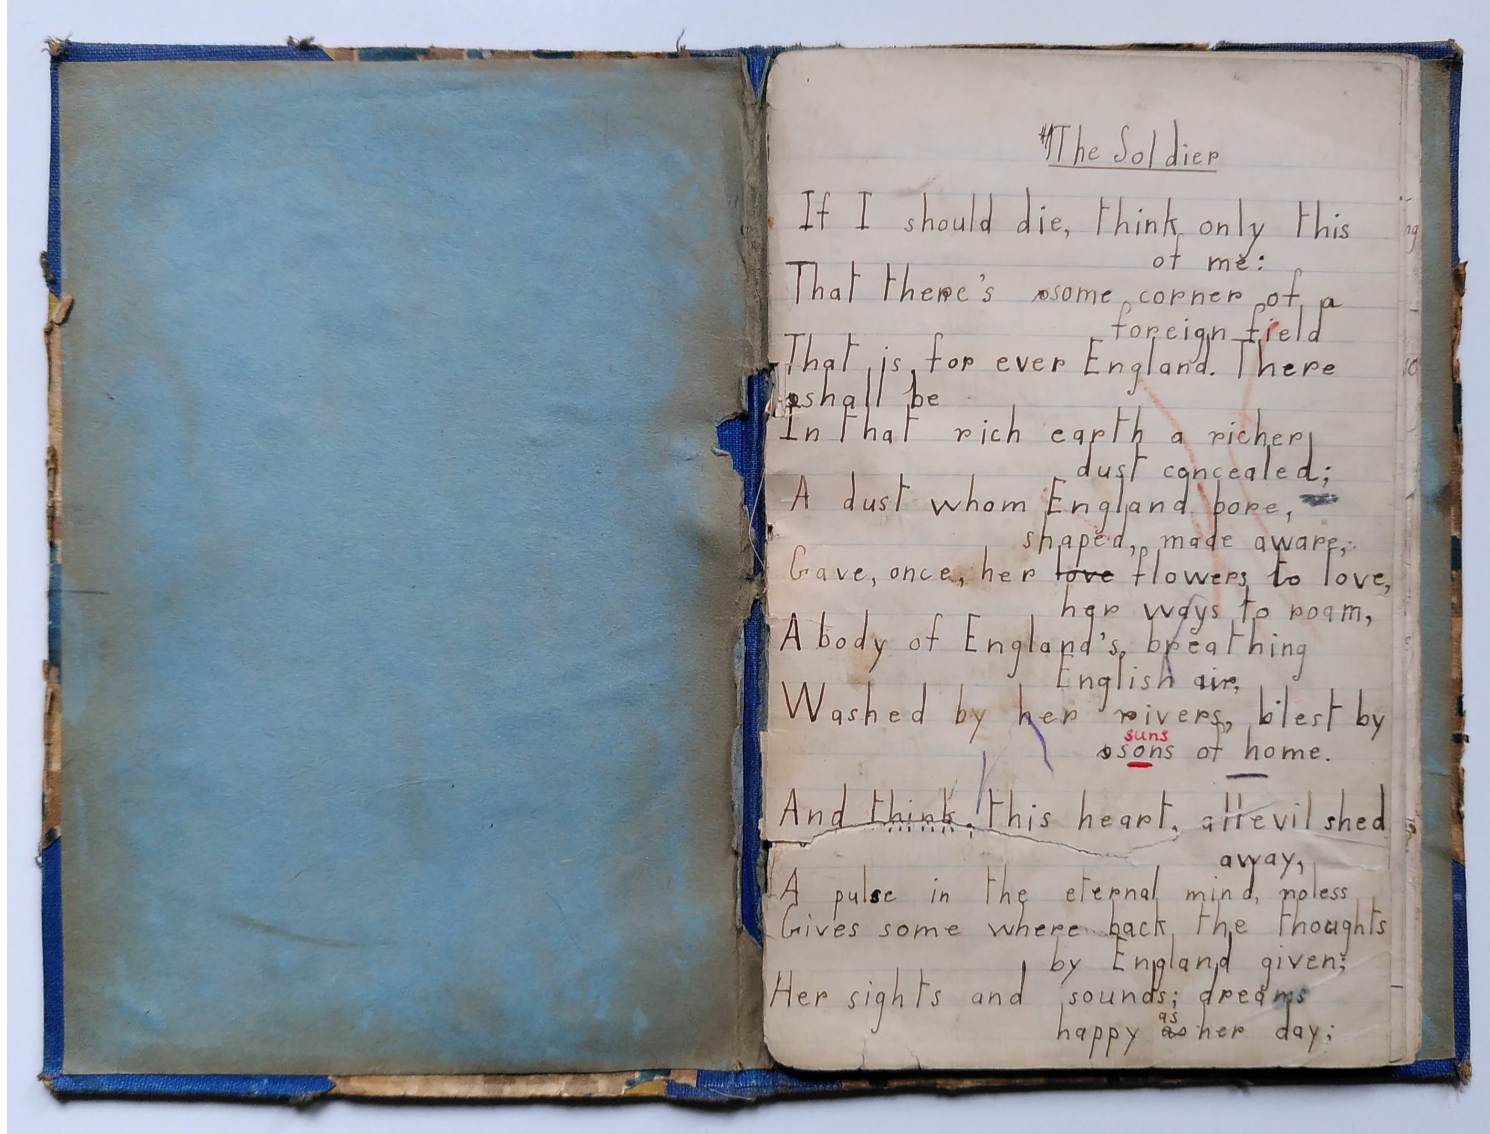 "The Soldier
If I should die, think only this
of me:
That there's some corner of a
foreign field
That is for ever England. There
shall be
In that rich earth a richer
dust concealed;
A dust whom England bore,
shaped, made aware,
Gave, once, her love flowers to love,
her ways to roam,
A body of England's, breathing
English air,
Washed by her rivers, blest by
suns
sons of home.
And think, this heart, all evil shed
away,
A pulse in the eternal mind, noless
Gives some where back the thoughts
by England given;
Her sights and sounds; dreams
as
happy as her day;